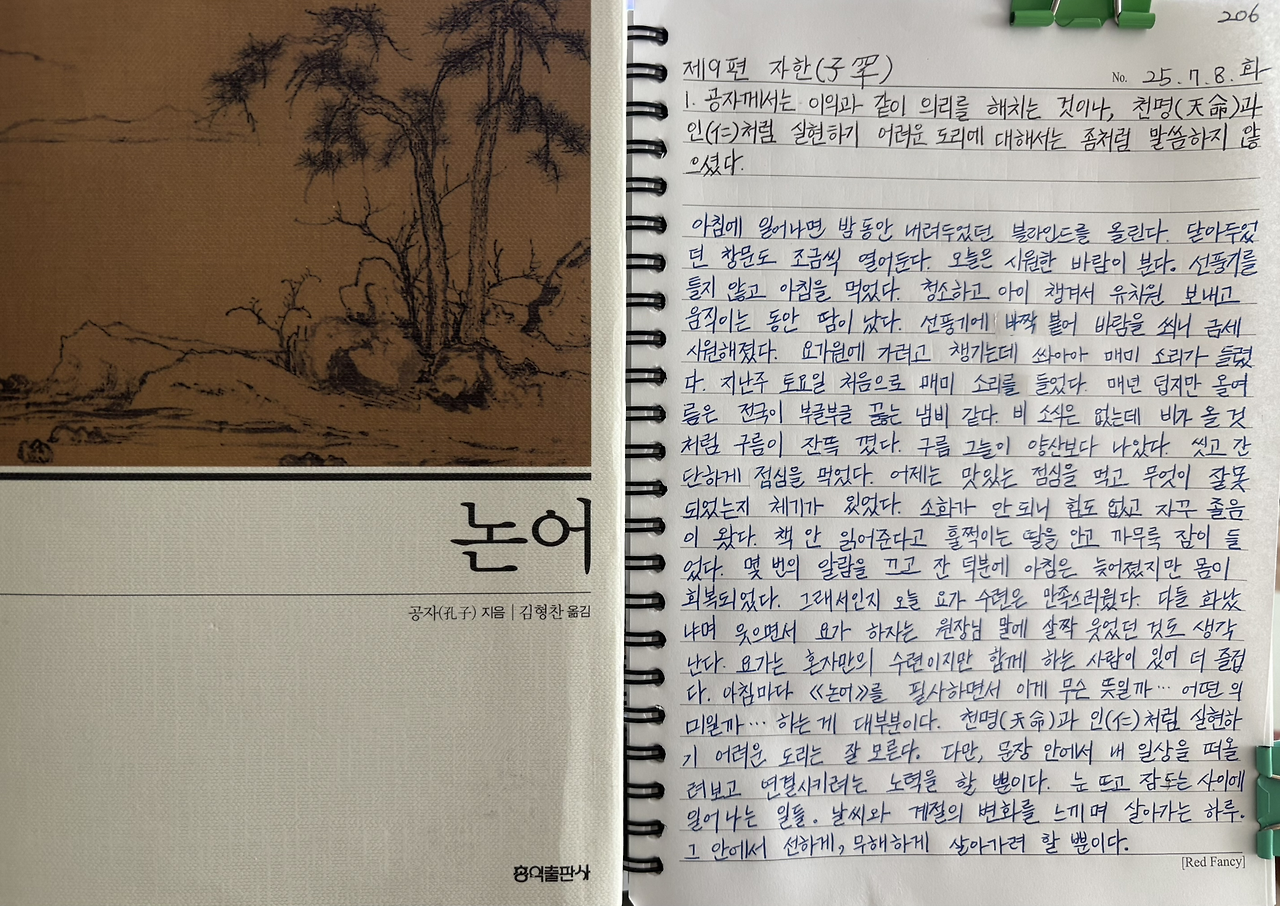 논어
공자(孔子) 지음 | 김형찬 옮김
홍익출판사
206
제9편 자한(子罕)
No. 25. 7. 8. 화
1. 공자께서는 이익과 같이 의리를 해치는 것이나, 천명(天命)과
인(仁)처럼 실현하기 어려운 도리에 대해서는 좀처럼 말씀하지 않
으셨다.
아침에 일어나면 밤 동안 내려두었던 블라인드를 올린다. 닫아두었
던 창문도 조금씩 열어둔다. 오늘은 시원한 바람이 분다. 선풍기를
틀지 않고 아침을 먹었다. 청소하고 아이 챙겨서 유치원 보내고
움직이는 동안 땀이 났다. 선풍기에 바짝 붙어 바람을 쐬니 금세
시원해졌다. 요가원에 가려고 챙기는데 쏴아아 매미 소리가 들렸
다. 지난주 토요일 처음으로 매미 소리를 들었다. 매년 덥지만 올여
름은 전국이 부글부글 끓는 냄비 같다. 비 소식은 없는데 비가 올 것
처럼 구름이 잔뜩 꼈다. 구름 그늘이 양산보다 나았다. 씻고 간
단하게 점심을 먹었다. 어제는 맛있는 점심을 먹고 무엇이 잘못
되었는지 체기가 있었다. 소화가 안 되니 힘도 없고 자꾸 졸음
이 왔다. 책 안 읽어준다고 훌쩍이는 딸을 안고 까무룩 잠이 들
었다. 몇 번의 알람을 끄고 잔 덕분에 아침은 늦어졌지만 몸이
회복되었다. 그래서인지 오늘 요가 수련은 만족스러웠다. 다들 화났
냐며 웃으면서 요가 하자는 원장님 말에 살짝 웃었던 것도 생각
난다. 요가는 혼자만의 수련이지만 함께 하는 사람이 있어 더 즐겁
다. 아침마다 《논어》를 필사하면서 이게 무슨 뜻일까… 어떤 의
미일까… 하는 게 대부분이다. 천명(天命)과 인(仁)처럼 실현하
기 어려운 도리는 잘 모른다. 다만, 문장 안에서 내 일상을 떠올
려보고 연결시키려는 노력을 할 뿐이다. 눈 뜨고 잠드는 사이에
일어나는 일들. 날씨와 계절의 변화를 느끼며 살아가는 하루.
그 안에서 선하게, 무해하게 살아가려 할 뿐이다.
[Red Fancy]